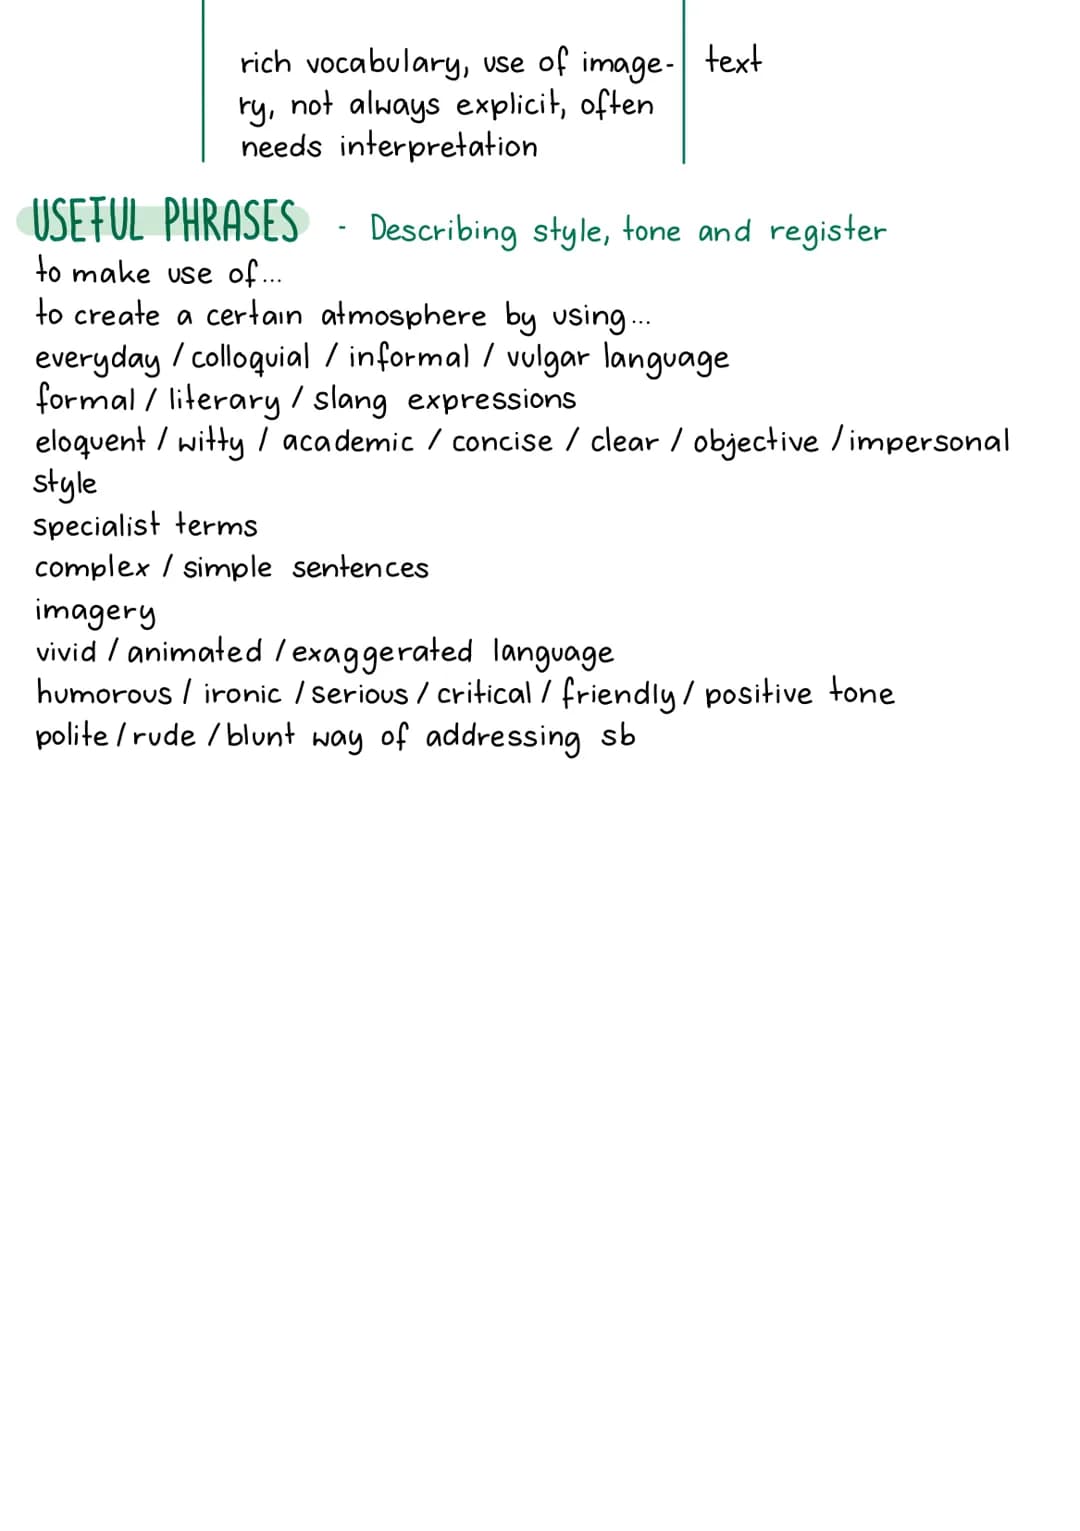 rich vocabulary, use of image- text
ry, not always explicit, often
needs interpretation
USEFUL PHRASES - Describing style, tone and register
to make use of...
to create a certain atmosphere by using...
everyday / colloquial / informal / vulgar language
formal / literary / slang expressions
eloquent / witty / academic / concise / clear / objective / impersonal
style
specialist terms
complex / simple sentences
imagery
vivid / animated / exaggerated language
humorous / ironic / serious / critical / friendly / positive tone
polite / rude / blunt way of addressing sb